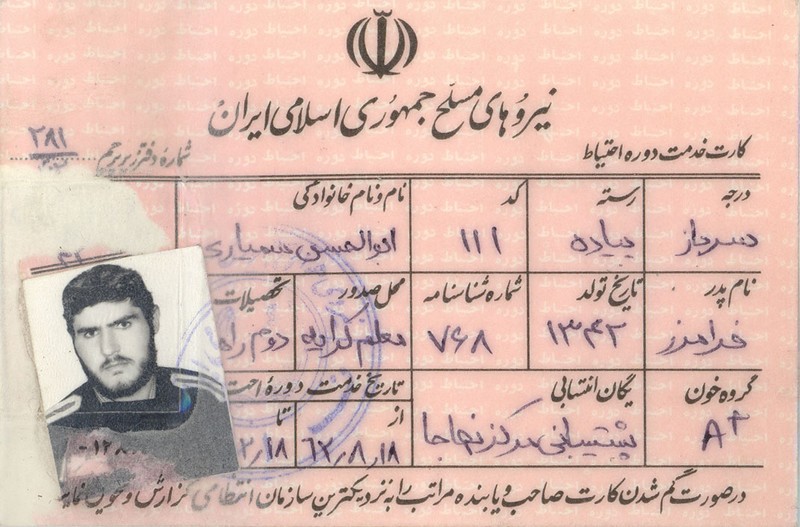 نیروهای مسلح جمهوری اسلامی ایران
کارت خدمت دوره احتیاط
شماره دفتر پرچم ۲۸۱
درجه رسته کد نام و نام خانوادگی
سرباز پیاده ۱۱۱ ابوالحسن
نام پدر تاریخ تولد شماره شناسنامه محل صدور تحصیلات
فرامرز ۱۳۴۲ ۷۶۸ دوم
گروه خون یگان انتسابی تاریخ خدمت دوره
A+ پشتیبانی مرکز نهاجا از ۶۲،۸،۱۸ تا ۲،۱۸
در صورت گم شدن کارت صاحب و یابنده مراتب را به نزدیکترین سازمان انتظامی گزارش و تحویل نماید